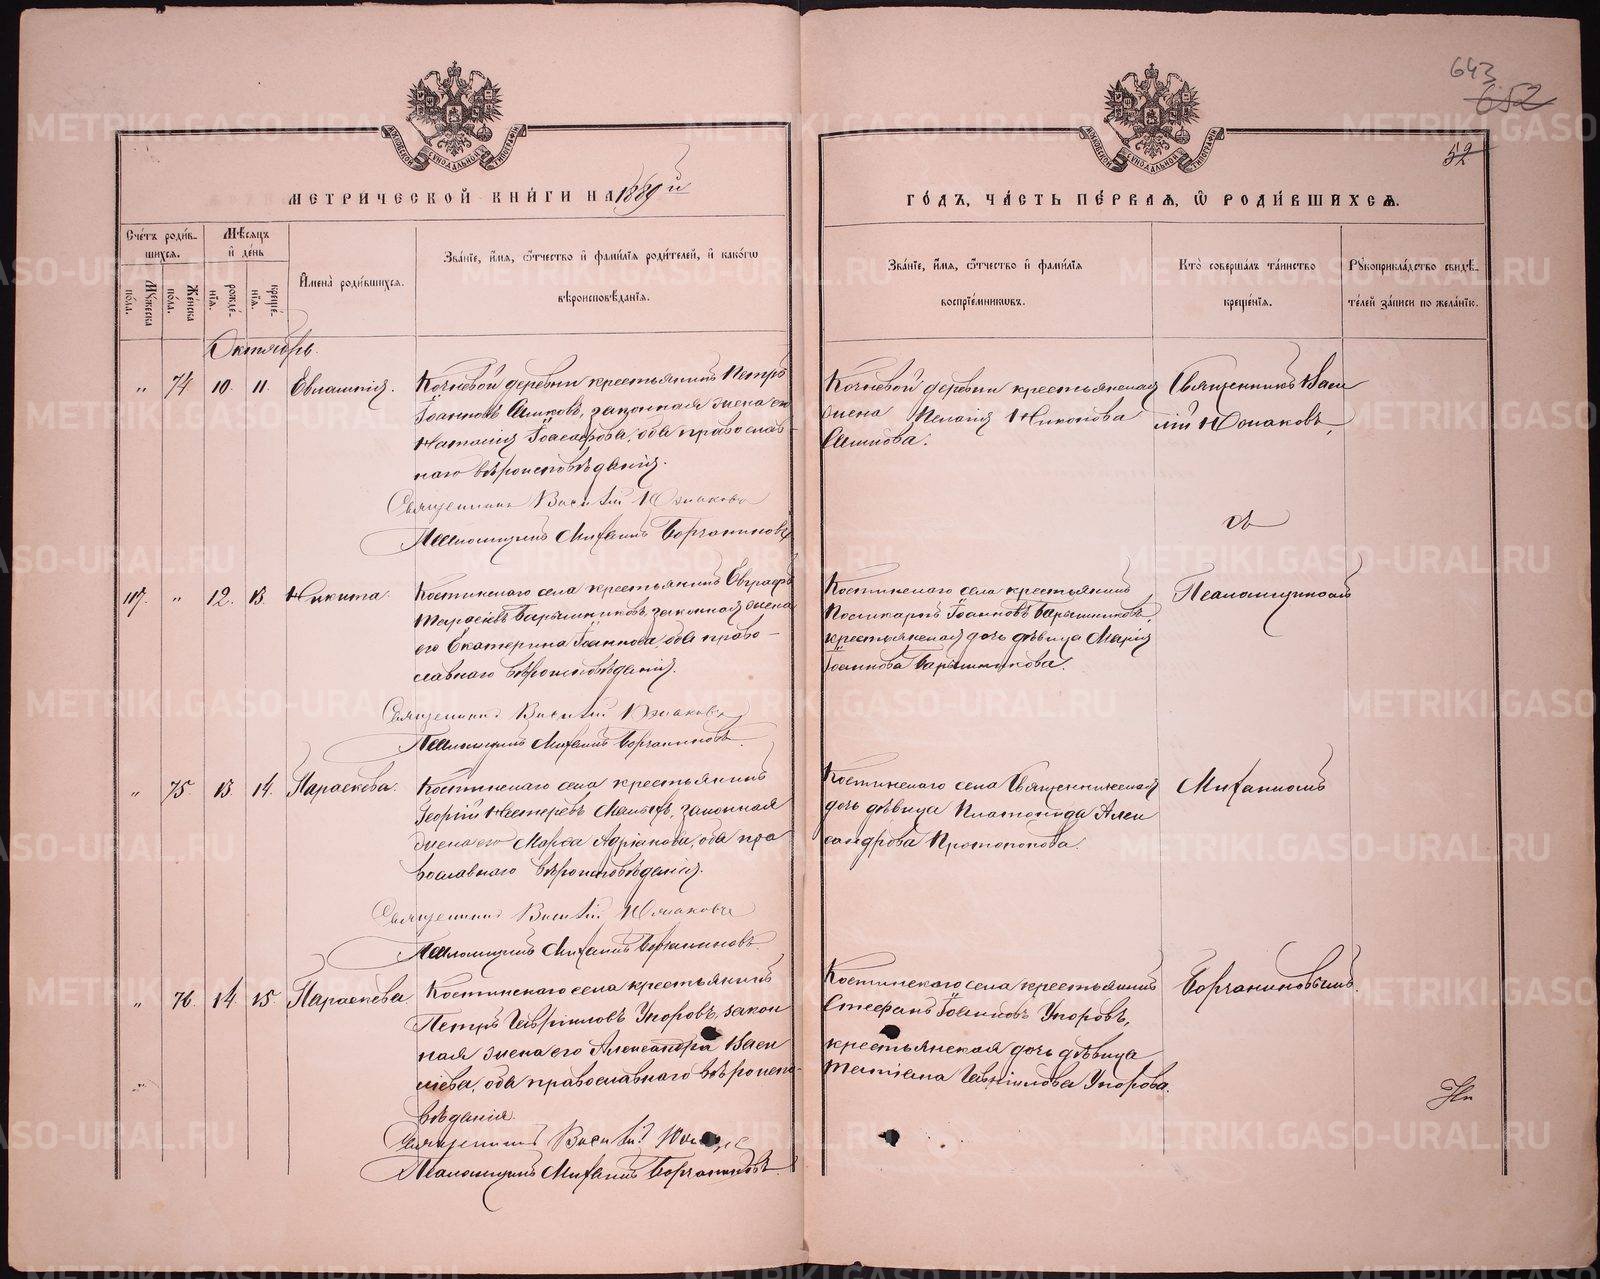 643
652
52
МЕТРИЧЕСКОЙ КНИГИ НА 1889 й
ГОДЪ, ЧАСТЬ ПЕРВАЯ, Ѡ РОДИВШИХСЯ.
Счетъ родившихся.
Мѣсяцъ и день
Имена родившихся.
Званіе, имя, ѻтчество и фамилія родителей, и какогѡ вѣроисповѣданія.
Званіе, имя, ѻтчество и фамилія воспріемникѡвъ.
Кто совершалъ таинство крещенія.
Рукоприкладство свидѣтелей записи по желанію.
Мужеска пола.
Женска пола.
рожденія.
крещенія.
Октябрь.
" 74 10. 11. Евлампія.
Кочневой деревни крестьянинъ Петръ
Іоанновъ, законная жена его
Наталія Іоасафова, оба православ-
наго вѣроисповѣданія.
Священникъ Василій Южаковъ
Псаломщикъ Михаилъ Борчаниновъ
Кочневой деревни крестьянская
жена Пелагія Никонова
Священникъ Васи
лій Южаковъ,
съ
117. " 12. 13. Никита.
Костинскаго села крестьянинъ Евграфъ
Тарасіевъ Барышниковъ, законная жена
его Екатерина Іоаннова, оба право-
славнаго вѣроисповѣданія.
Священникъ Василій Южаковъ
Псаломщикъ Михаилъ Борчаниновъ.
Костинскаго села крестьянинъ
Поликарпъ Іоанновъ Барышниковъ,
крестьянская дочь дѣвица Марія
Іоаннова Барышникова.
Псаломщикомъ
" 75 13 14. Параскева.
Костинскаго села крестьянинъ
Георгій Нестеровъ, законная
жена его Марѳа Адріанова, оба пра
вославнаго вѣроисповѣданія.
Священникъ Василій Южаковъ
Псаломщикъ Михаилъ Борчаниновъ.
Костинскаго села Священническая
дочь дѣвица Платонида Алек
сандрова Протопопова.
Михаиломъ
" 76. 14. 15. Параскева
Костинскаго села крестьянинъ
Петръ Гавріиловъ Упоровъ, закон
ная жена его Александра Васи
ліева, оба православнаго вѣроиспо-
вѣданія.
Священникъ Василій
Псаломщикъ Михаилъ Борчаниновъ.
Костинскаго села крестьянинъ
Стефанъ Іоанновъ Упоровъ,
крестьянская дочь дѣвица
Татіана Гавріилова Упорова.
Борчаниновымъ.
METRIKI.GASO-URAL.RU